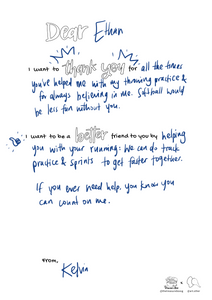 Dear Ethan
I want to thank you for all the times
you've helped me with my throwing practice &
for always believing in me. Softball would
be less fun without you.
I want to be a better friend to you by helping
you with your running: We can do track
practice & sprints to get faster together.
If you ever need help, you know you
can count on me.
From,
Kelvin